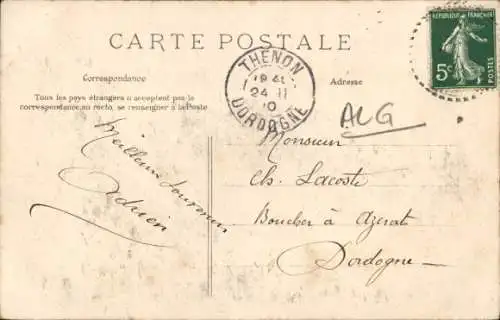 CARTE POSTALE
Correspondance
Adresse
Tous les pays étrangers n'acceptent pas la
correspondance au recto, se renseigner à la Poste
THENON
24 11
10
DORDOGNE
REPUBLIQUE FRANÇAISE
5c
POSTES
ALG
Meilleur souvenir
Adrien
Monsieur
Ch. Lacoste
Boucher à Azerat
Dordogne